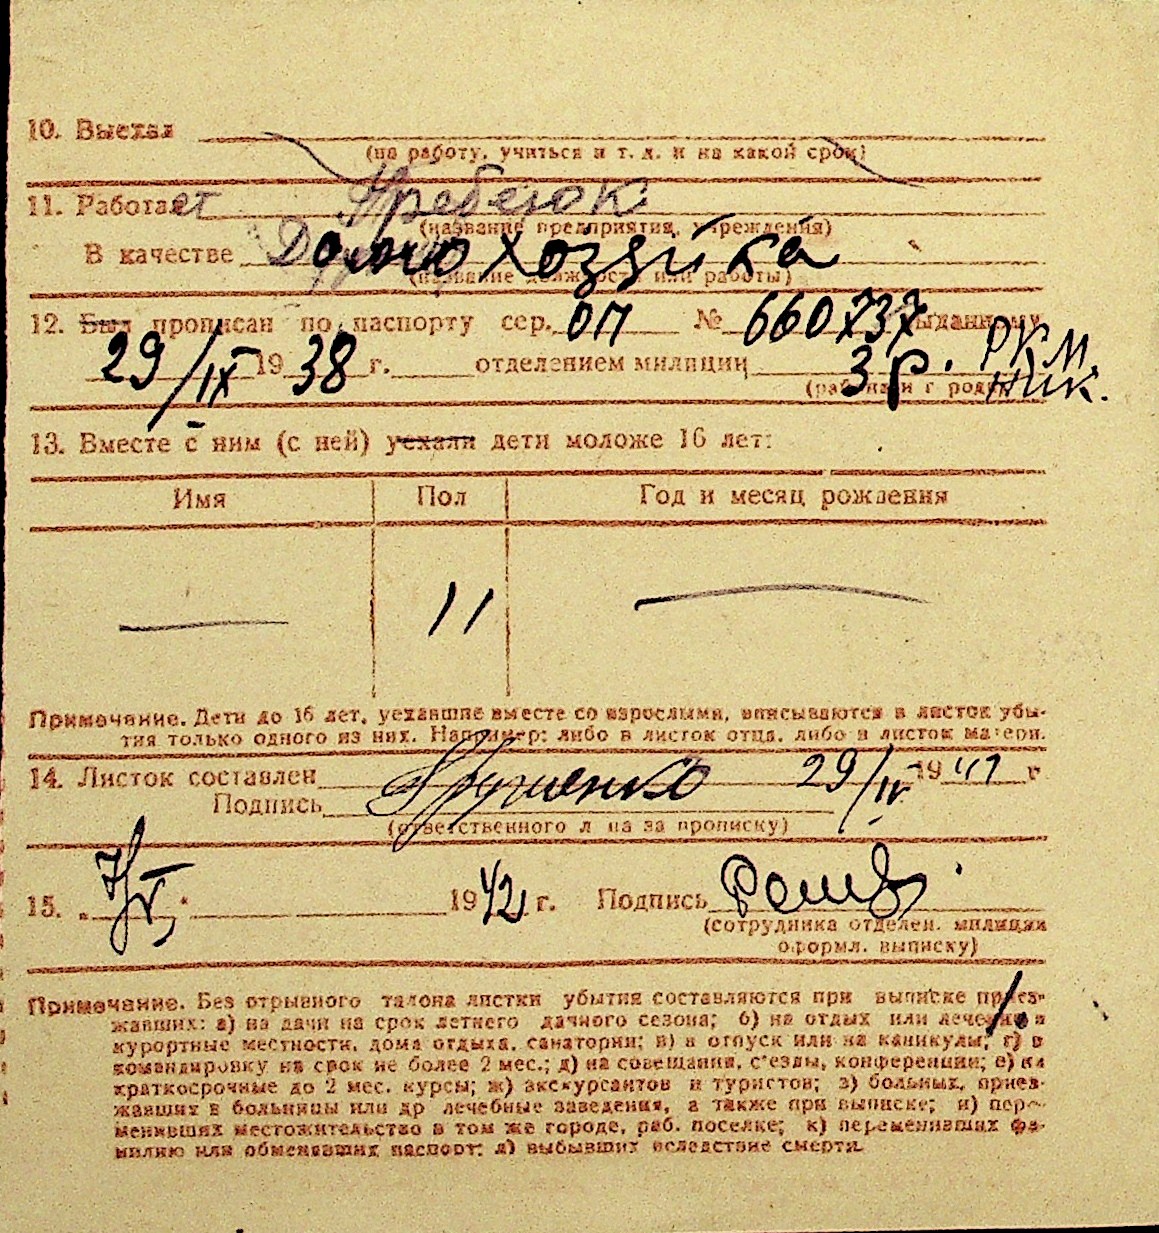 10. Выехал
(на работу, учиться и т. д. и на какой срок)
11. Работает
(название предприятия, учреждения)
В качестве Домохозяйка
(название должности или работы)
12. Был прописан по паспорту сер. ОП № 660737 выданному
29/IX 1938 г. отделением милиции 3 р. РКМ
(район и г род)
13. Вместе с ним (с ней) уехали дети моложе 16 лет:
Имя Пол Год и месяц рождения
— 11 —
Примечание. Дети до 16 лет, уехавшие вместе со взрослыми, вписываются в листок убы-
тия только одного из них. Например: либо в листок отца, либо в листок матери.
14. Листок составлен 29/IV 1941 г
Подпись
(ответственного л ца за прописку)
15. „7/V" 1942 г. Подпись
(сотрудника отделен. милиции
оформл. выписку)
Примечание. Без отрывного талона листки убытия составляются при выписке приез-
жавших: а) на дачи на срок летнего дачного сезона; б) на отдых или лечение в
курортные местности, дома отдыха, санатории; в) в отпуск или на каникулы; г) в
командировку на срок не более 2 мес.; д) на совещания, с'езды, конференции; е) на
краткосрочные до 2 мес. курсы; ж) экскурсантов и туристов; з) больных, приез-
жавших в больницы или др лечебные заведения, а также при выписке; и) пере-
менивших местожительство в том же городе, раб. поселке; к) переменивших фа-
милию или обменявших паспорт; л) выбывших вследствие смерти.